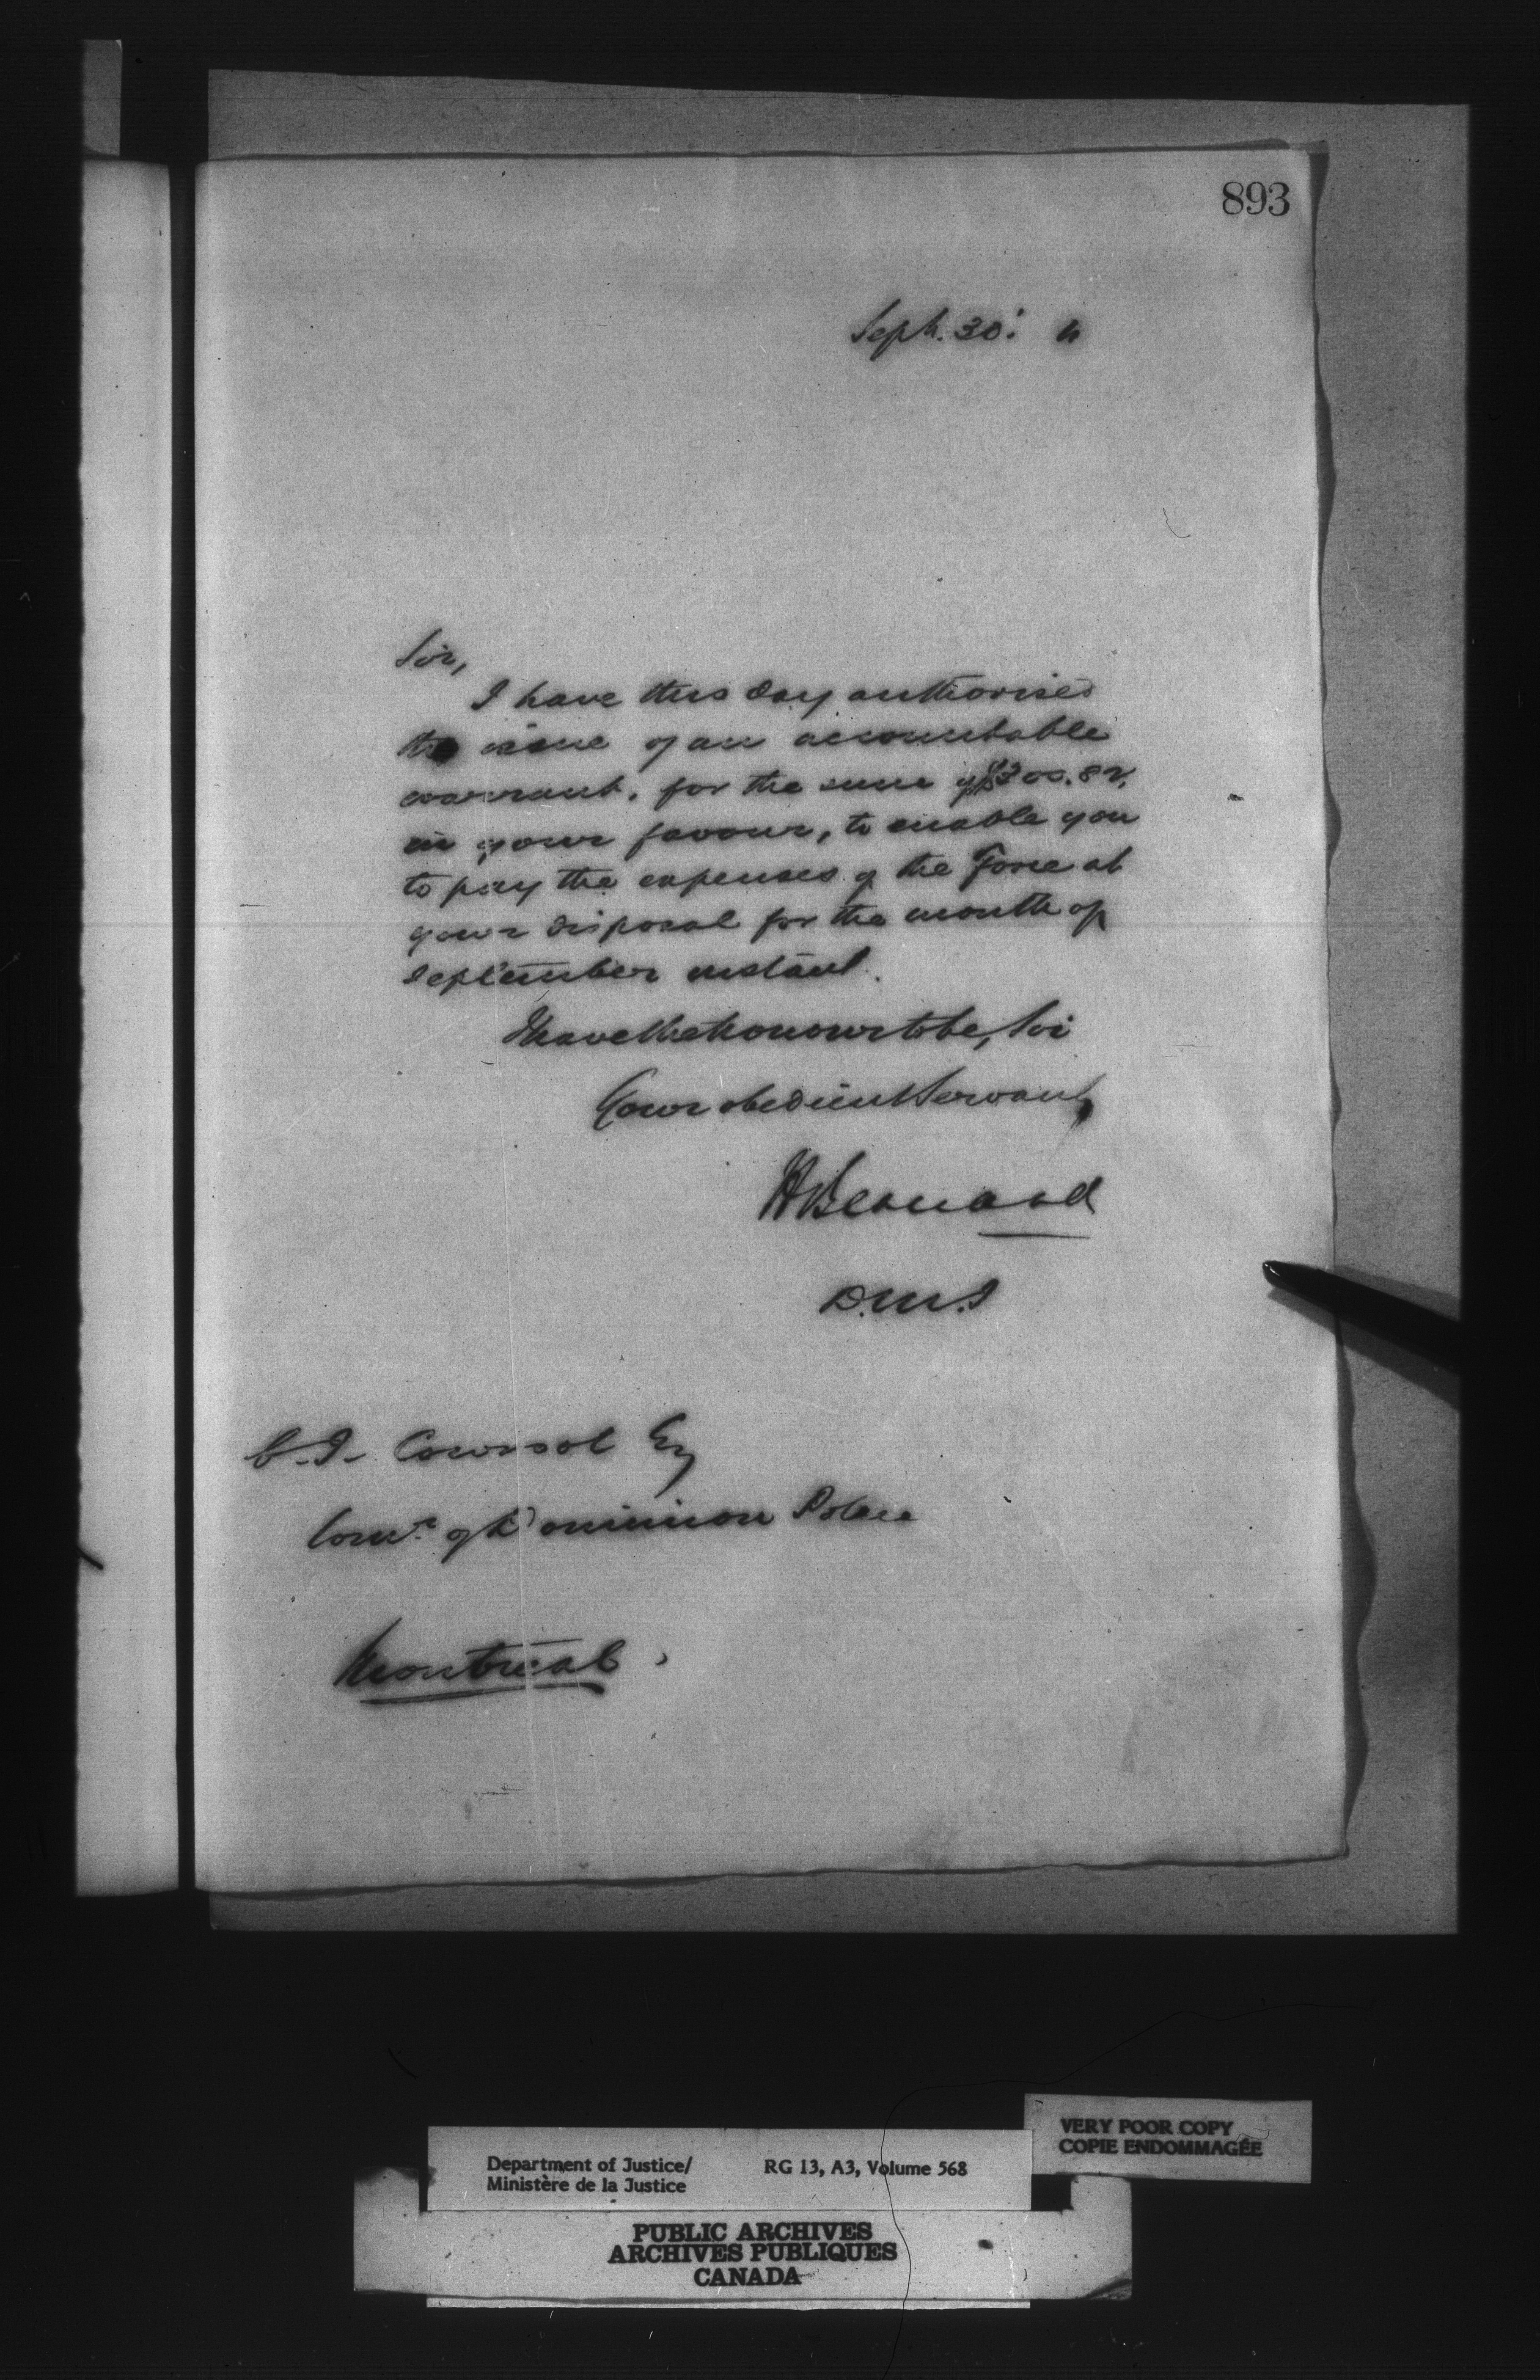 893
Sept. 30.
Sir,
I have this day authorised
the issue of an accountable
warrant, for the sum of $300.82,
in your favour, to enable you
to pay the expenses of the Force at
your disposal for the month of
September instant.
I have the honour to be, Sir
Your obedient Servant,
H Bernard
D.M.J
C. J. Coursol Esq
Comr. of Dominion Police
Montreal.
VERY POOR COPY
COPIE ENDOMMAGÉE
Department of Justice/ RG 13, A3, Volume 568
Ministère de la Justice
PUBLIC ARCHIVES
ARCHIVES PUBLIQUES
CANADA